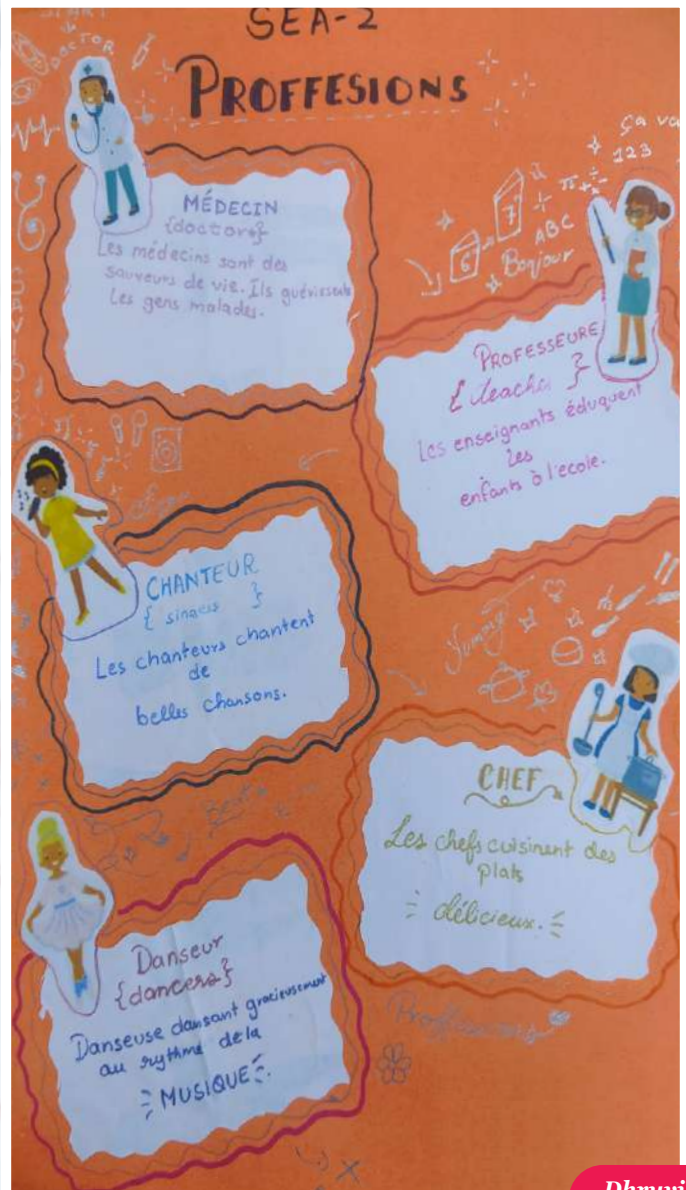 SEA-2
PROFFESIONS
DOCTOR
MÉDECIN
{doctors}
Les médecins sont des
sauveurs de vie. Ils guérissent
les gens malades.
ça va
123
7
6
ABC
Bonjour
PROFESSEURE
{ }
Les enseignants éduquent
les
enfants à l'ecole.
CHANTEUR
{ singers }
Les chanteurs chantent
de
belles chansons.
Yummy
CHEF
Les chefs cuisinent des
plats
délicieux.
Danseur
{dancers}
Danseuse dansant gracieusement
au rythme de la
MUSIQUE
Proffesions